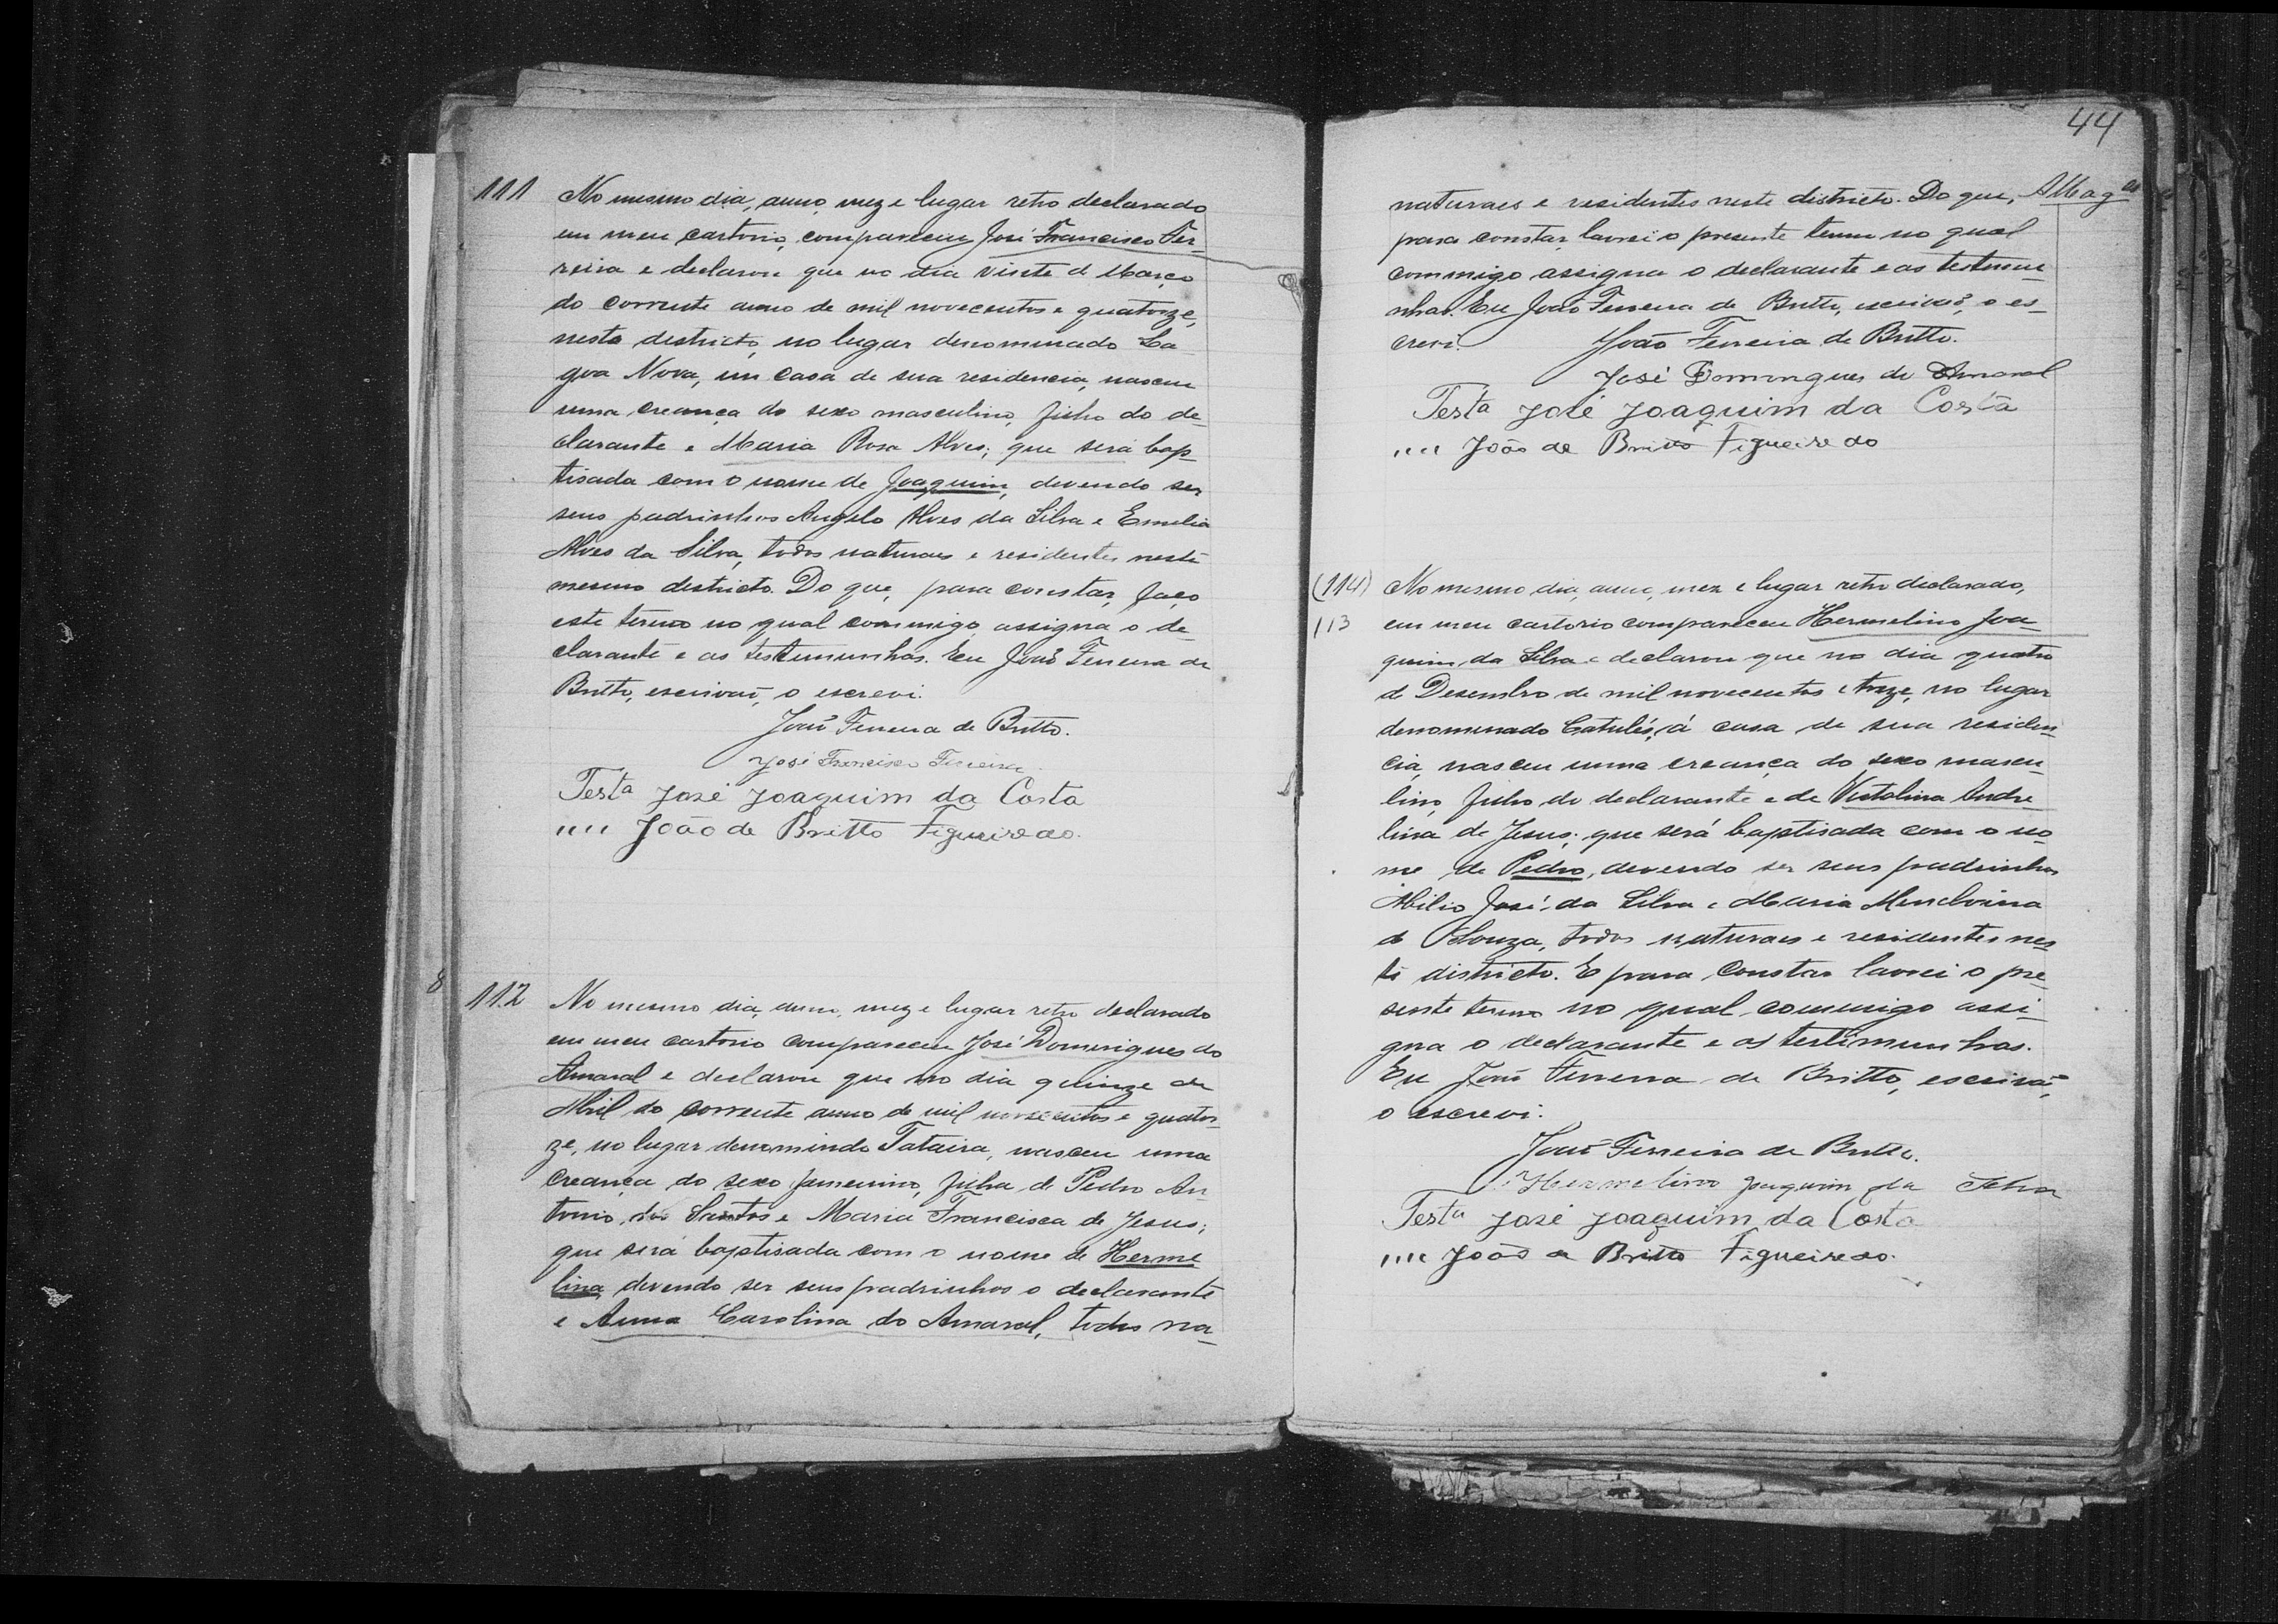 111
No mesmo dia, anno, mez e lugar retro declarado
em meu cartorio, compareceu José Francisco Fer-
reira e declarou que no dia vinte de Março
do corrente anno de mil novecentos e quatorze,
neste districto, no lugar denominado La-
goa Nova, em casa de sua residencia, nasceu
uma creança do sexo masculino, filho do de-
clarante e Maria Rosa Alves; que será bap-
tisada com o nome de Joaquim, devendo ser
seus padrinhos Angelo Alves da Silva e Emelia
Alves da Silva, todos naturaes e residentes neste
mesmo destricto. Do que, para constar, faço
este termo no qual commigo assigna o de-
clarante e as testemunhas. Eu João Ferreira de
Britto, escrivaõ, o escrevi.
João Ferreira de Britto.
José Francisco Ferreira
Testa José Joaquim da Costa
" " João de Britto Figueiredo.
8
112
No mesmo dia, anno, mez e lugar retro declarado
em meu cartorio compareceu José Domingues do
Amaral e declarou que no dia quinze de
Abril do corrente anno de mil novecentos e quator-
ze, no lugar denomindo Tataira, nasceu uma
creança do sexo femenino, filha de Pedro An-
tonio dos Santos e Maria Francisca de Jesus;
que será baptisada com o nome de Herme
lina, devendo ser seus padrinhos o declarante
e Anna Carolina do Amaral, todos na-
44
naturaes e residentes neste districto. Do que,
para constar, lavrei o presente termo no qual
commigo assigna o declarante e as testemu-
nhas. Eu João Ferreira de Britto, escrivaõ, o es-
crevi.
João Ferreira de Britto.
José Domingues do Amaral
Testa José Joaquim da Costa
" " João de Britto Figueiredo
(114)
113
No mesmo dia, anno, mez e lugar retro declarado,
em meu cartorio compareceu Hermelino Joa-
quim da Silva e declarou que no dia quatro
de Desembro de mil novecentos e treze, no lugar
denominado Catulés, á casa de sua residen-
cia, nasceu uma creança do sexo mascu-
lino, filho do declarante e de Victolina Andre
lina de Jesus; que será baptisada com o no-
me de Pedro, devendo ser seus padrinhos
Abilio José da Silva e Maria
de Souza, todos naturaes e residentes nes-
te districto. E para constar lavrei o pre-
sente termo no qual commigo assi-
gna o declarante e as testimunhas.
Eu João Ferreira de Britto, escrivaõ,
o escrevi.
João Ferreira de Britto.
Hermelino Joaquim da Silva
Testa José Joaquim da Costa
" " João de Britto Figueiredo.